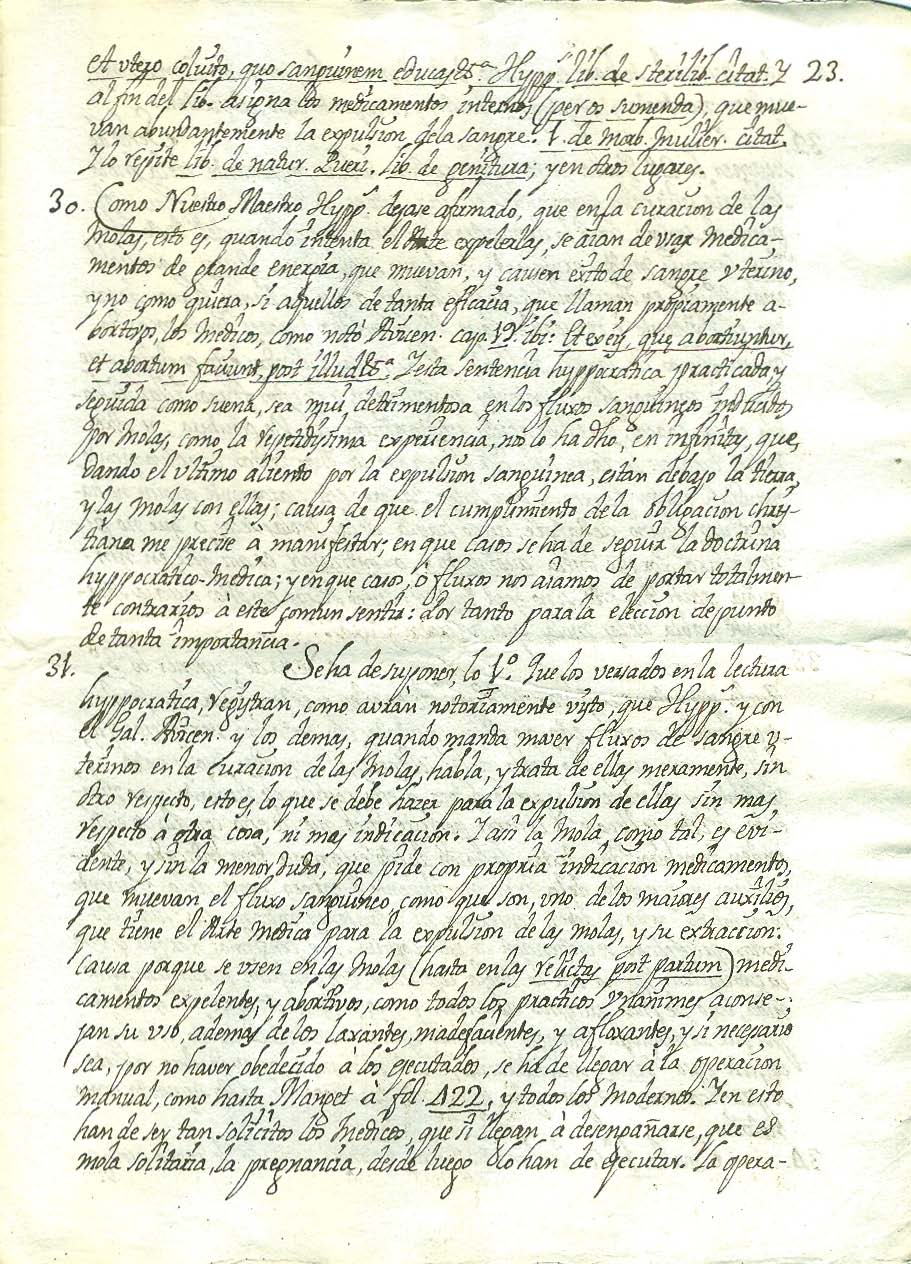 et vtero coluito, quo sanguinem educas &c.ª Hypp.s lib. de sterilib. citat. Y 23.
al fin del lib. asigna los medicamentos internos (per os sumenda), que mue-
van abundantemente la expulsion dela sangre. 1. de Morb. Mulier. citat.
Y lo repite lib. de natur. Pueri. lib. de genitura; y en otros lugares.
30. Como Nuestro Maestro Hypp.s dejase afirmado, que en la curacion de las
Molas, esto es, quando intenta el Arte expelerlas, se aian de vsar medica-
mentos de grande energia, que muevan, y causen exito de sangre vterino,
y no como quiera, si aquellos de tanta eficacia, que llaman propiamente a-
bortivos, los Medicos, como notò Avicen. cap. 19. ibi: Et ex eis, que abortiuntur,
et abortum faciunt, post illud &c.ª Y esta sentencia hyppocratica practicada, y
seguida como suena, sea mui detrimentosa en los fluxos sanguineos inducidos
por Molas; como la repetidissima experiencia, nos lo ha dho, en infinitas, que,
dando el vltimo aliento por la expulsion sanguinea, están debajo la tierra,
y las Molas con ellas; causa de que el cumplimiento de la obligacion chris-
tiana me precise à manifestar; en que casos se ha de seguir la doctrina
hyppocratico-Medica; y en que casos, ò fluxos nos aiamos de portar totalmen-
te contrarios à este comun sentir: Por tanto para la eleccion de punto
de tanta importancia.
31. Se ha de suponer, lo 1.º Que los versados en la lectura
hyppocratica, registran, como avràn notoriamente visto, que Hypp.s y con
el Gal. Avicen. y los demas, quando manda mover fluxos de sangre v-
terinos en la curacion de las Molas, habla, y trata de ellas meramente, sin
otro respecto, esto es, lo que se debe hazer para la expulsion de ellas sin mas
respecto à otra cosa, ni mas indicacion. Y assi la Mola, como tal, es evi-
dente, y sin la menor duda, que pide con propria indicacion medicamentos,
que muevan el fluxo sanguineo, como que son, vno de los maiores auxilios,
que tiene el Arte Medica para la expulsion de las molas, y su extraccion:
Causa porque se vsen en las Molas (hasta en las relictas post partum) medi-
camentos expelentes, y abortivos, como todos los practicos vnanimes aconse-
jan su vso, ademas de los laxantes, madefacientes, y afloxantes, y si necesario
sea, por no haver obedecido à los ejecutados, se ha de llegar à la operacion
manual, como hasta Manget à fol. 422, y todos los Modernos. Y en esto
han de ser tan solicitos los Medicos, que si llegan à desengañarse, que es
mola solitaria, la pregnancia, desde luego lo han de ejecutar. La opera-